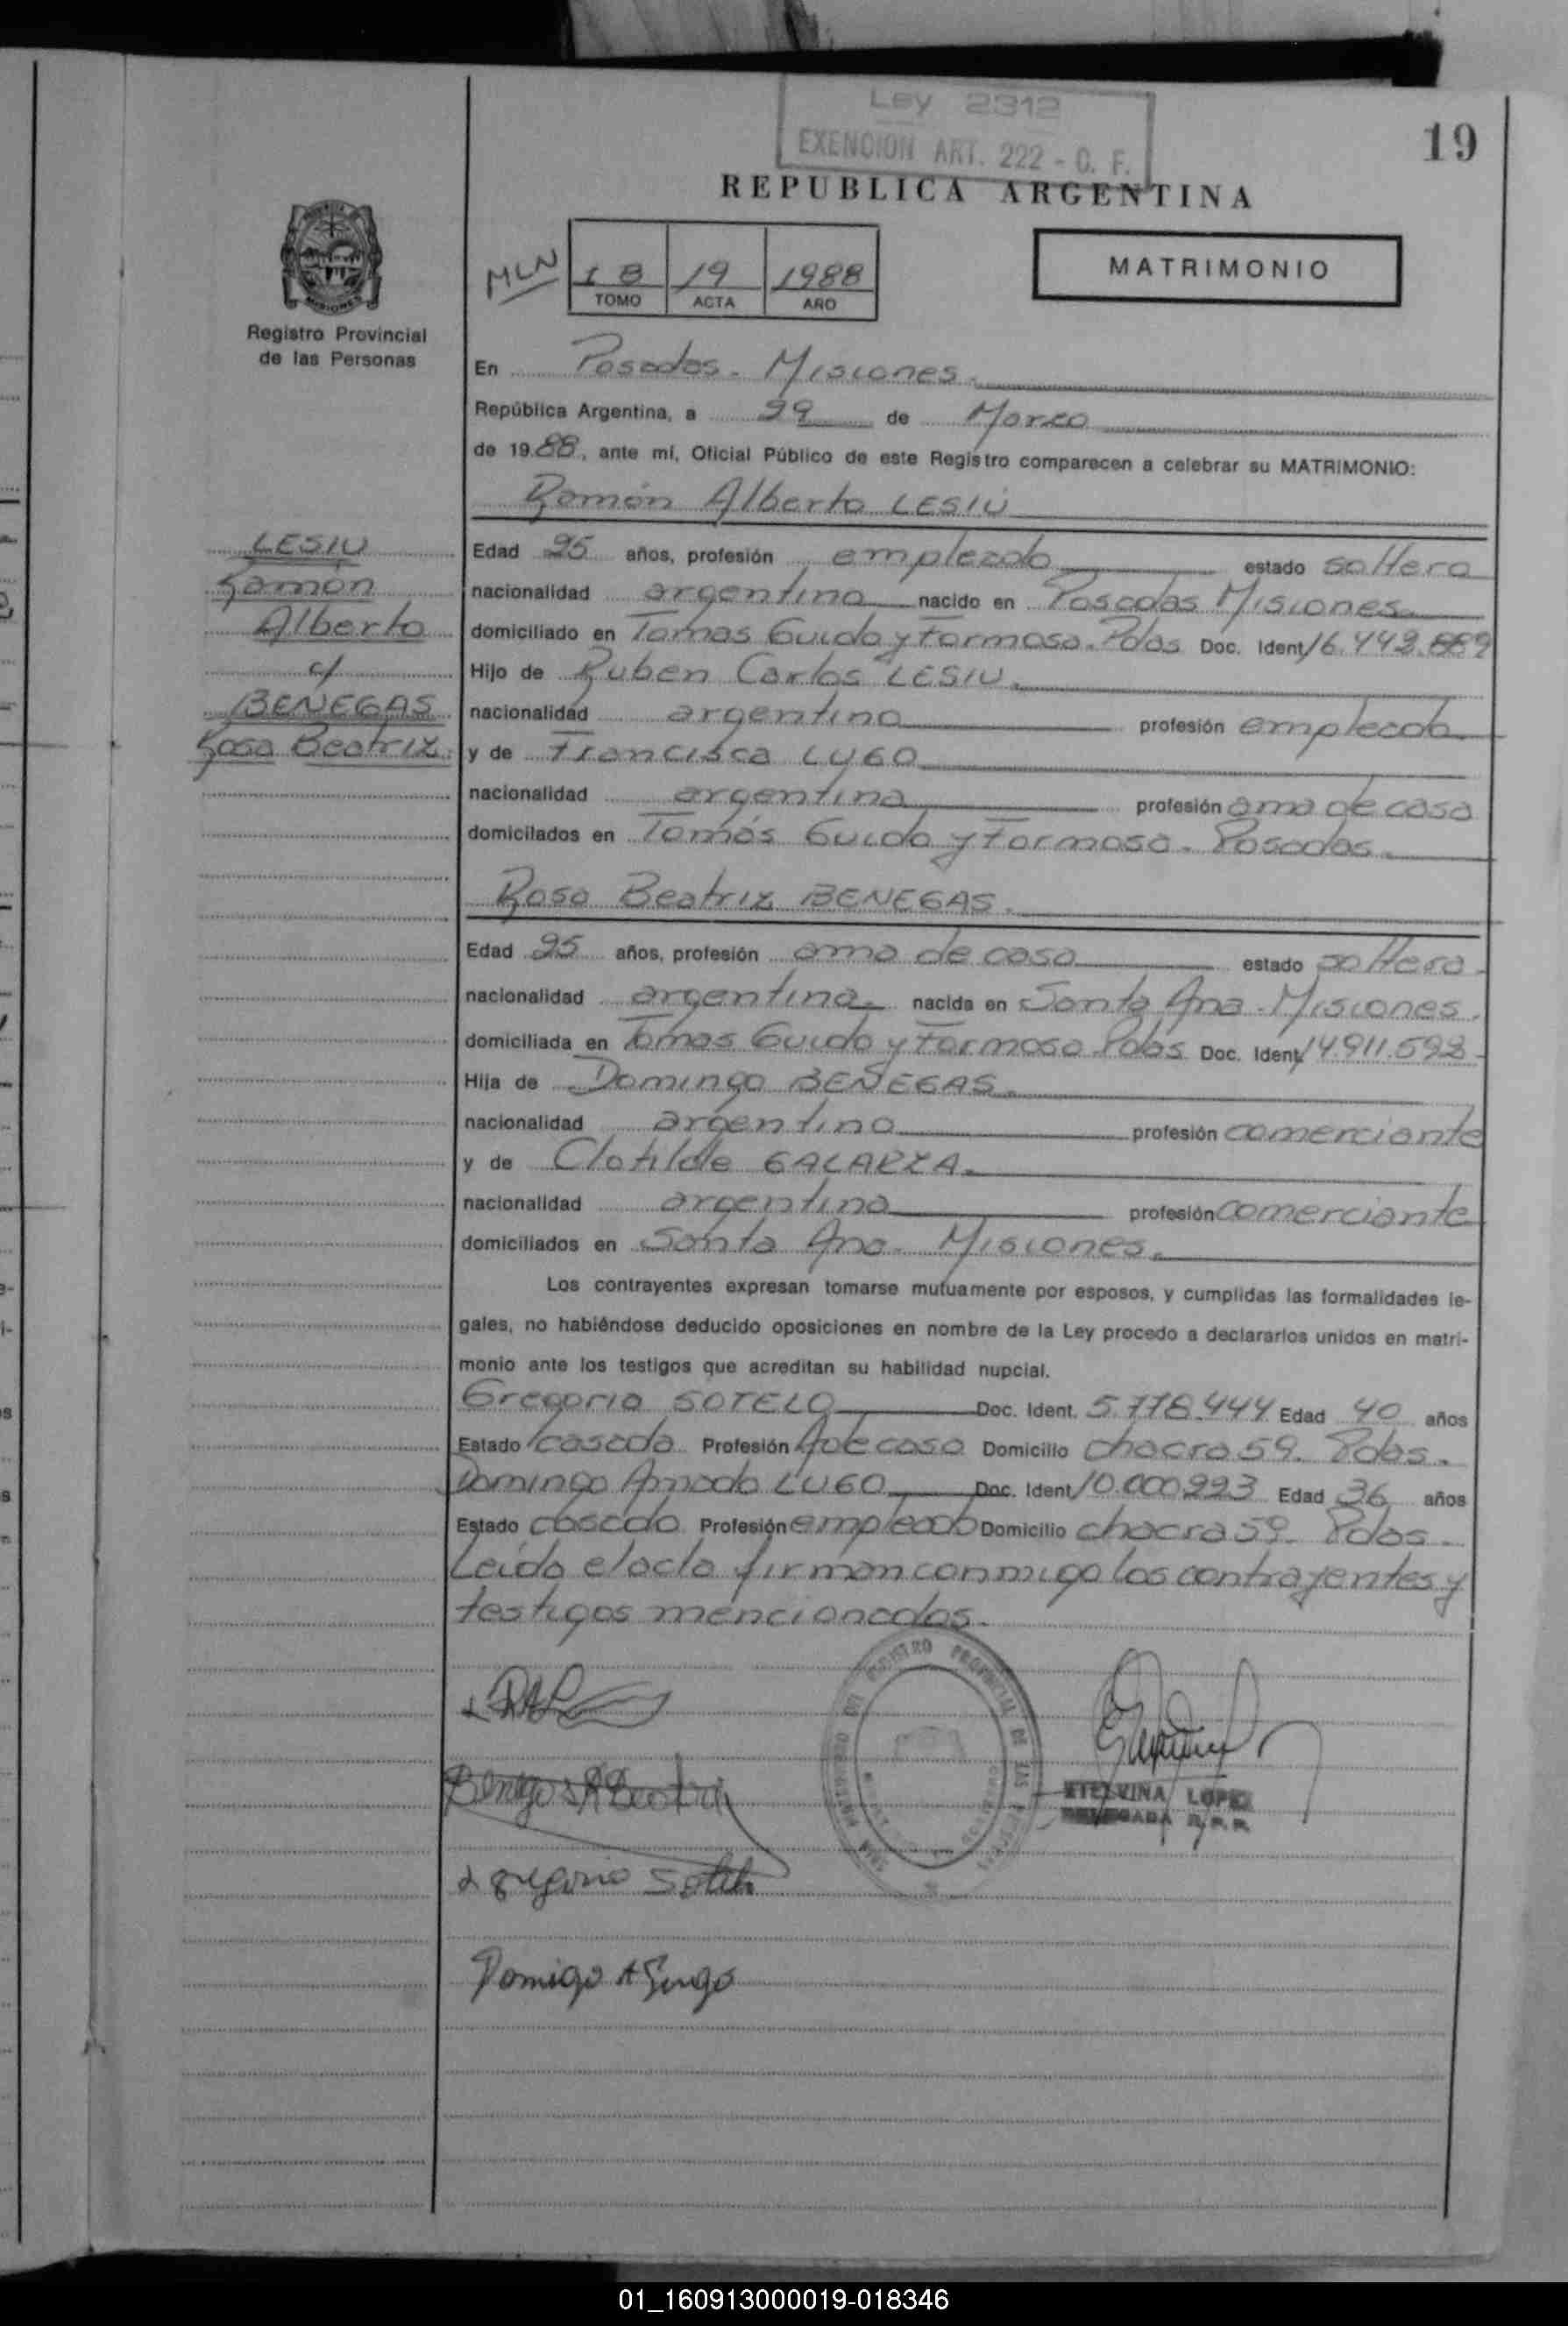 Ley 2312
EXENCION ART. 222 - C. F.
19
REPUBLICA ARGENTINA
MLN
I B 19 1988
TOMO ACTA AÑO
MATRIMONIO
MISIONES
Registro Provincial
de las Personas
En Posadas - Misiones.
República Argentina, a 29 de Marzo
de 1988, ante mí, Oficial Público de este Registro comparecen a celebrar su MATRIMONIO:
Ramón Alberto LESIU
LESIU
Ramón
Alberto
c/
BENEGAS
Rosa Beatriz
Edad 25 años, profesión empleado estado soltero
nacionalidad argentina nacido en Posadas Misiones.
domiciliado en Tomas Guido y Formosa. Pdas Doc. Ident.
Hijo de Ruben Carlos LESIU.
nacionalidad argentina profesión empleado
y de Francisca LUGO
nacionalidad argentina profesión ama de casa
domiciliados en Tomás Guido y Formosa. Posadas.
Rosa Beatriz BENEGAS.
Edad 25 años, profesión ama de casa estado soltera
nacionalidad argentina. nacida en Santa Ana - Misiones.
domiciliada en Tomas Guido y Formosa Pdas Doc. Ident. 14.911.592
Hija de Domingo BENEGAS.
nacionalidad argentina profesión comerciante
y de Clotilde GALARZA.
nacionalidad argentina profesión comerciante
domiciliados en Santa Ana. Misiones.
Los contrayentes expresan tomarse mutuamente por esposos, y cumplidas las formalidades le-
gales, no habiéndose deducido oposiciones en nombre de la Ley procedo a declararlos unidos en matri-
monio ante los testigos que acreditan su habilidad nupcial.
Gregoria SOTELO Doc. Ident. 5.778.444 Edad 40 años
Estado casada Profesión A de casa Domicilio chacra 59. Pdas.
Domingo Amado LUGO Doc. Ident. 10.000.223 Edad 36 años
Estado casado Profesión empleado Domicilio chacra 59. Pdas.
Leída el acta firman conmigo los contrayentes y
testigos mencionados.
REGISTRO PROVINCIAL DE LAS PERSONAS
Benegas R Beatriz
ETELVINA LOPEZ
DELEGADA R.P.P.
Gregoria Sotelo
Domigo A Lugo
01_160913000019-018346